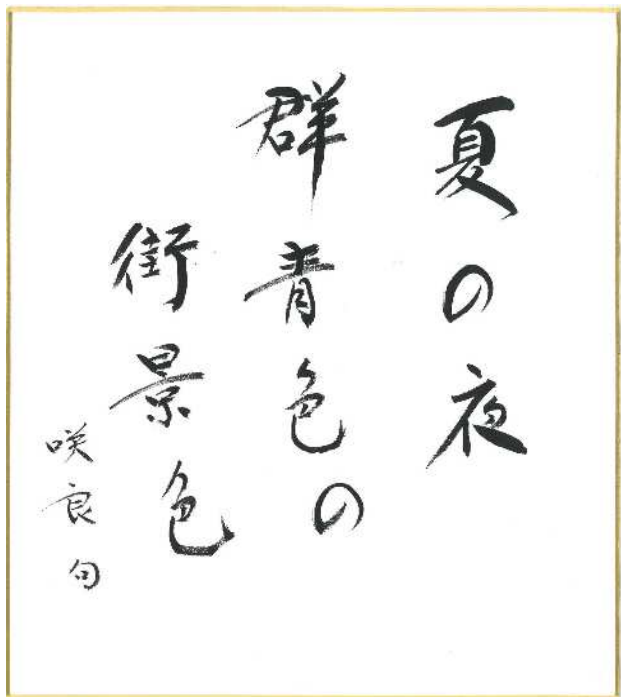 夏の夜
群青色の
街景色
咲良句